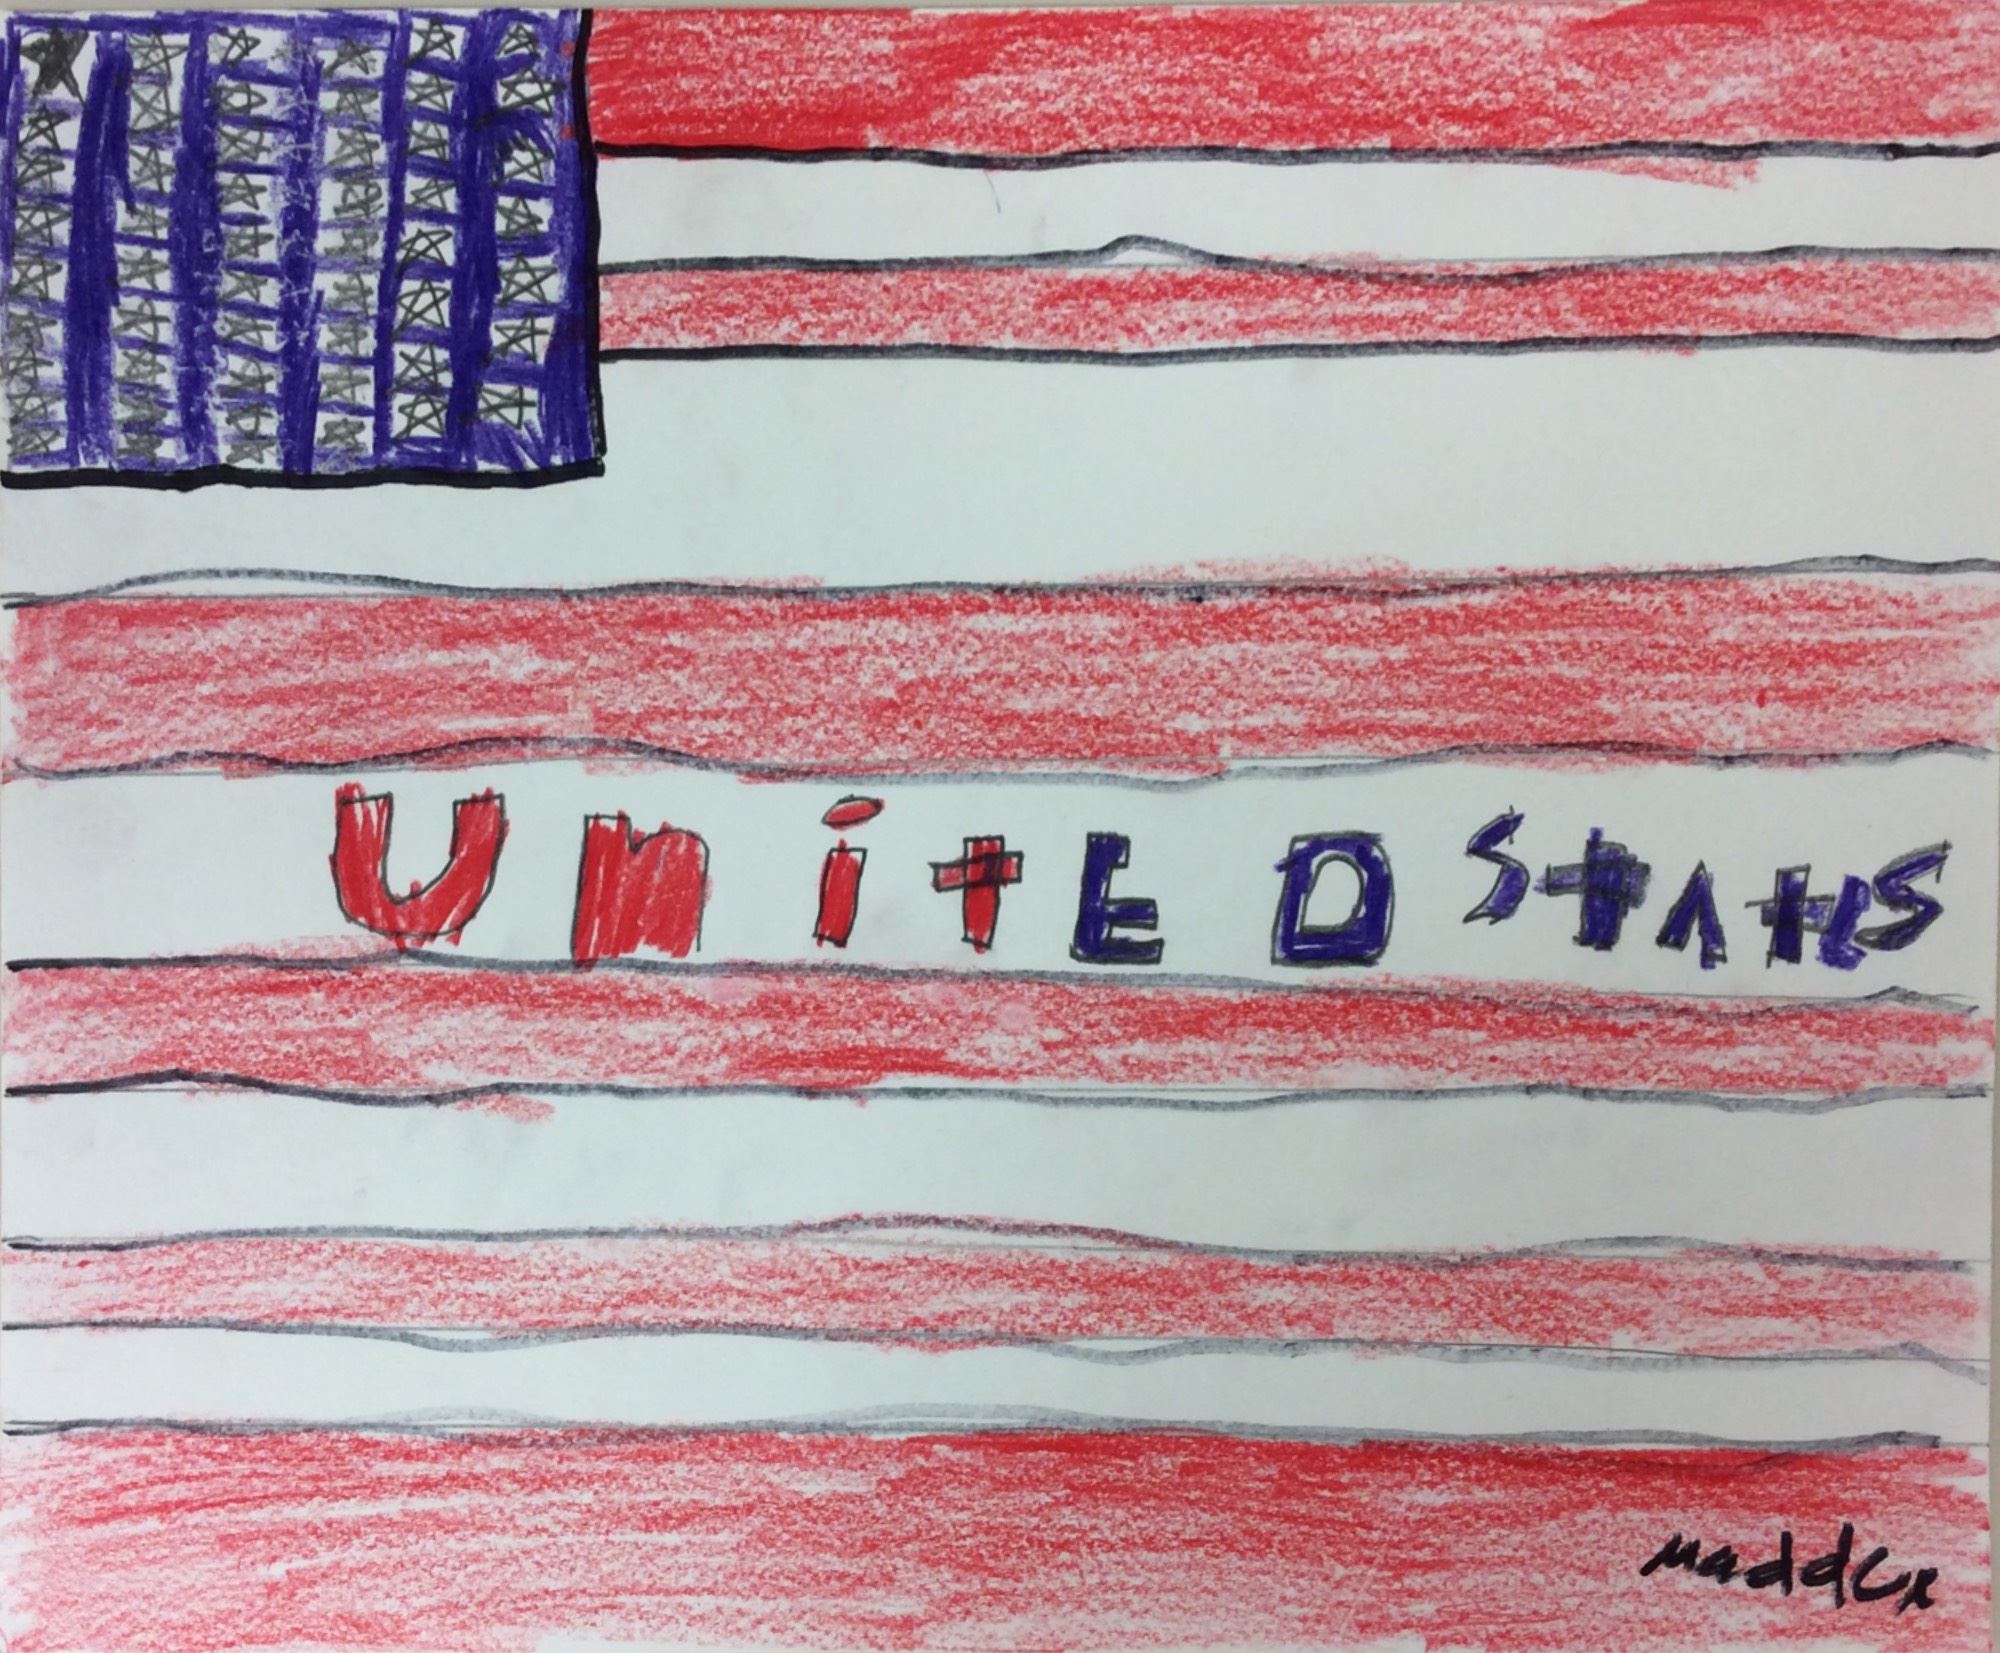 UnitED StAtES
maddox